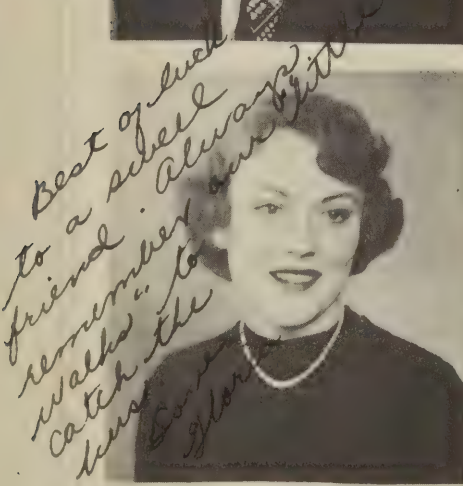 Best of luck
to a swell
friend. Always
remember our "little
walks" to
catch the
bus.
Love
Gloria